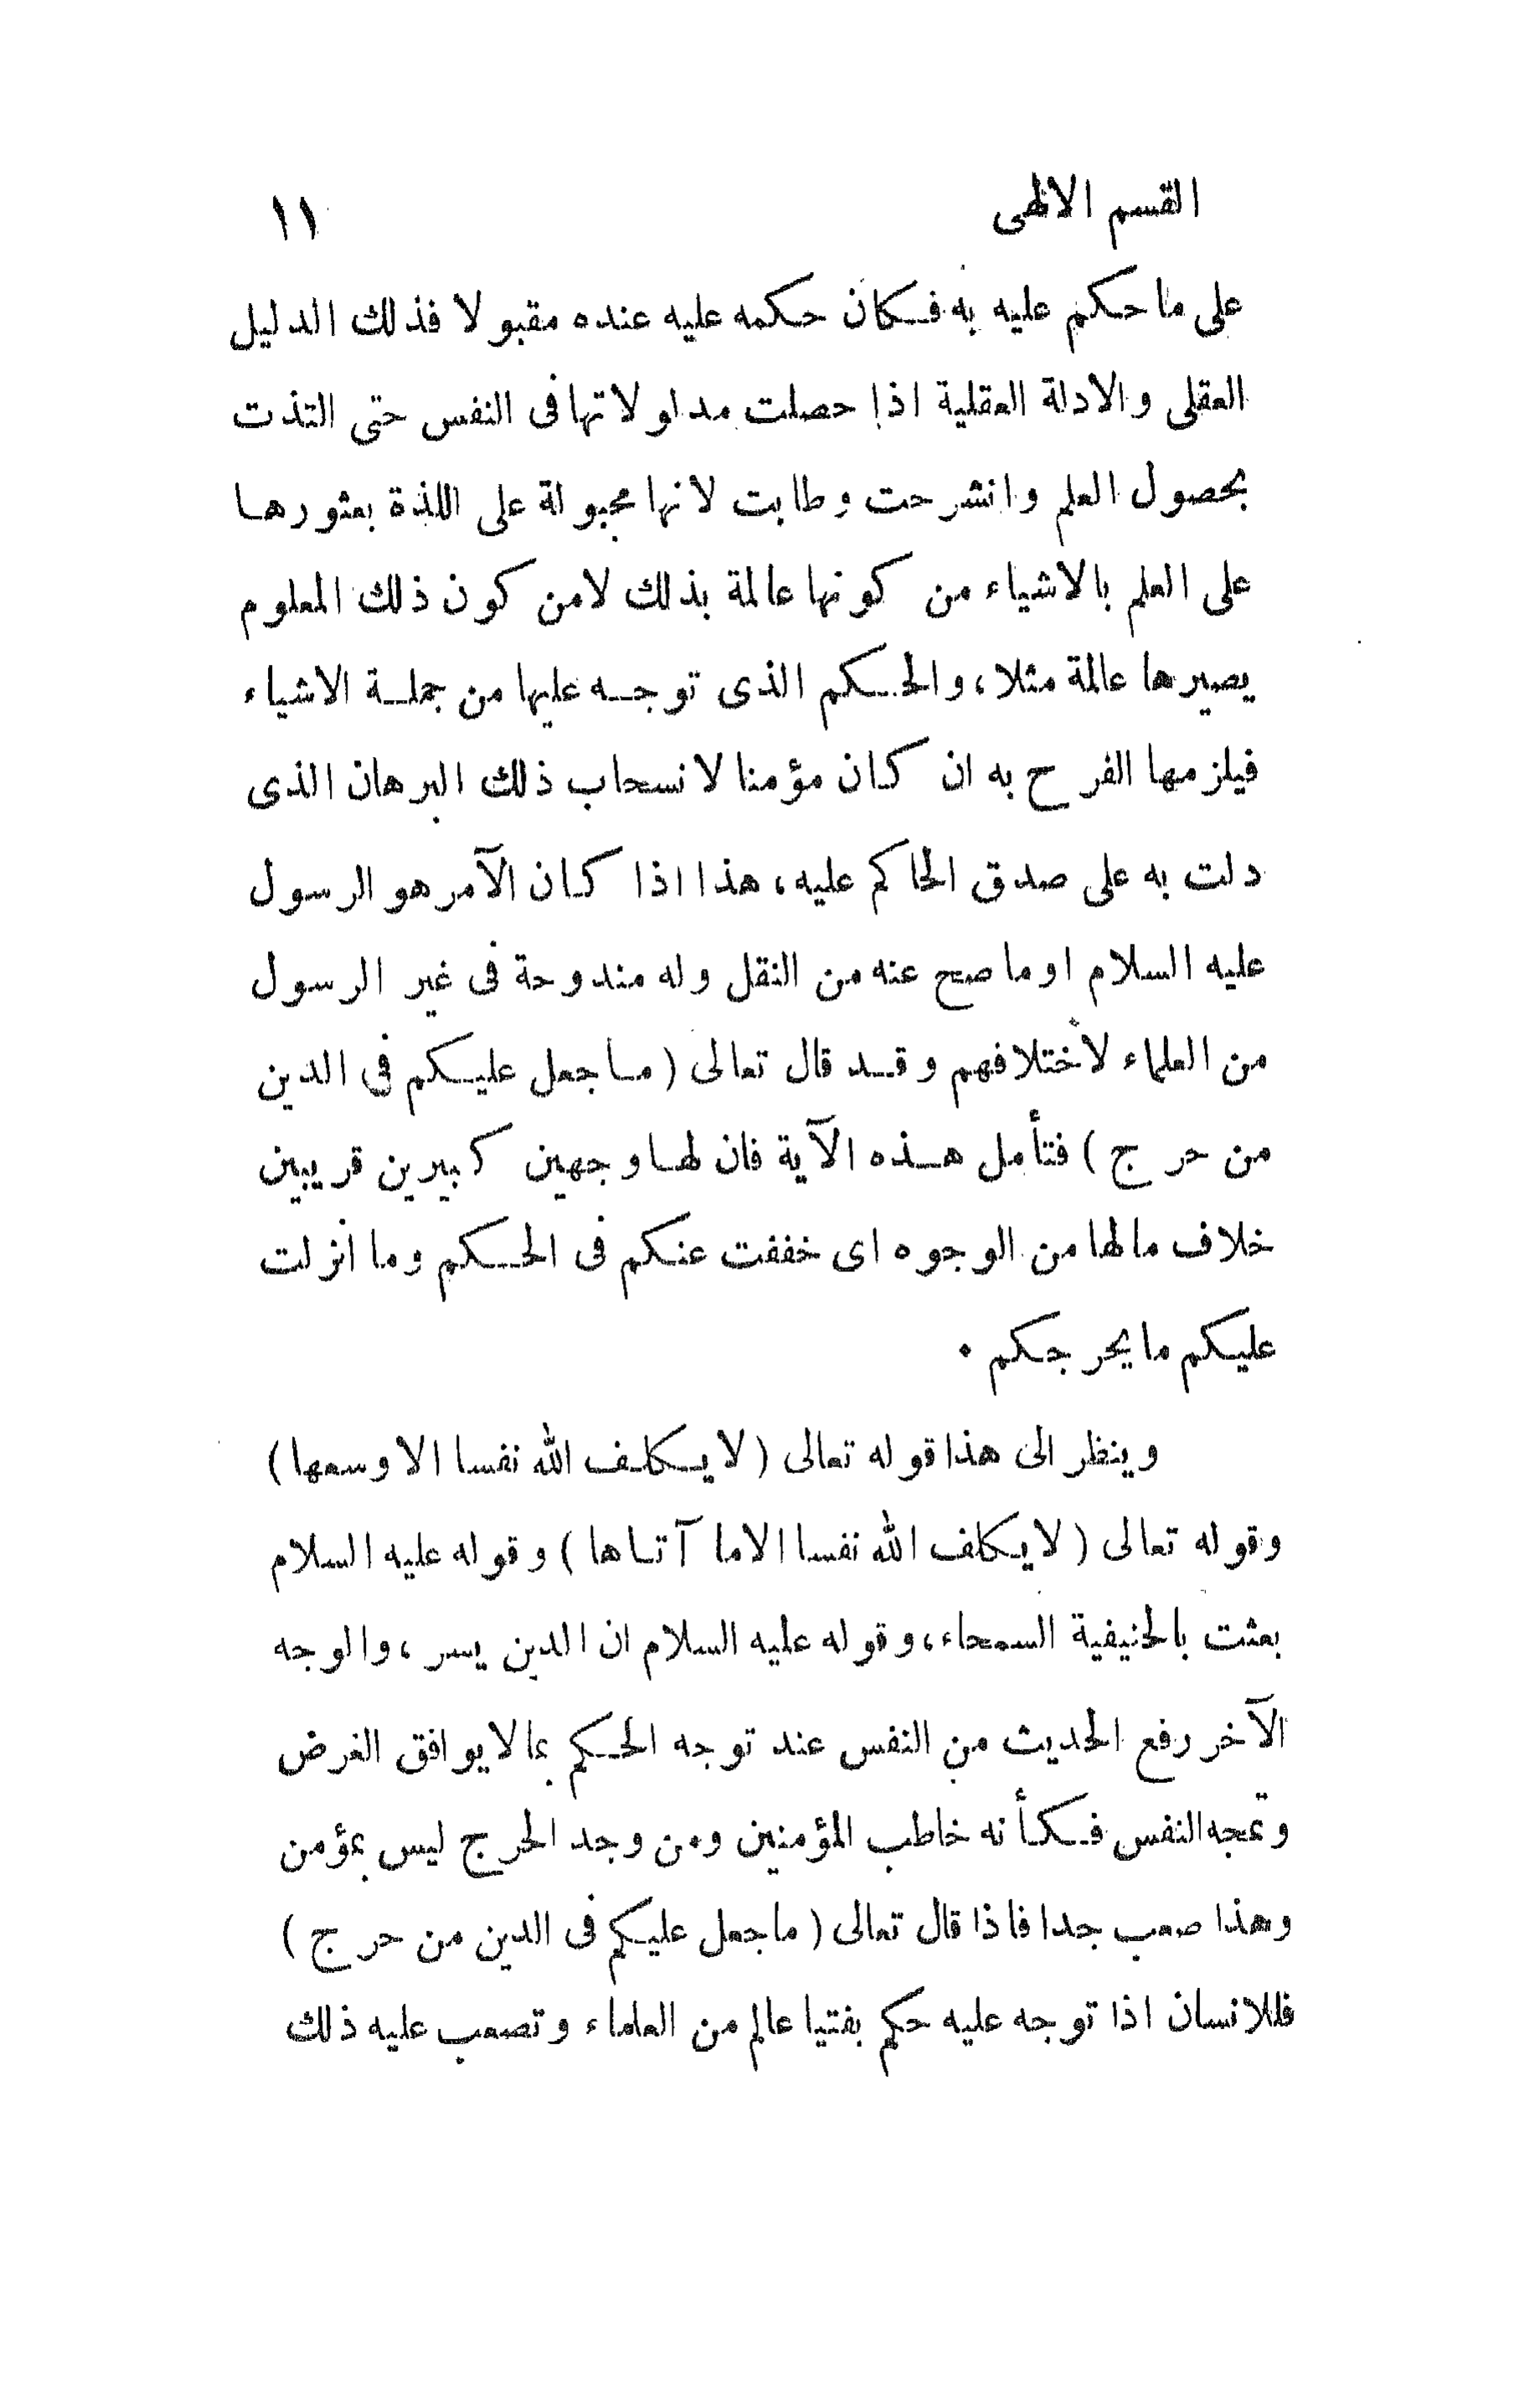 القسم الالهى ١١
على ما حكم عليه به فكان حكمه عليه عنده مقبولا فذلك الدليل
العقلى والادلة العقلية اذا حصلت مدلولاتها فى النفس حتى التذت
بحصول العلم وانشرحت وطابت لانها مجبولة على اللذة بعثورها
على العلم بالاشياء من كونها عالمة بذلك لا من كون ذلك المعلوم
يصيرها عالمة مثلا، والحكم الذى توجه عليها من جملة الاشياء
فيلزمها الفرح به ان كان مؤمنا لانسحاب ذلك البرهان الذى
دلت به على صدق الحاكم عليه، هذا اذا كان الآمر هو الرسول
عليه السلام او ما صح عنه من النقل وله مندوحة فى غير الرسول
من العلماء لاختلافهم وقد قال تعالى (ما جعل عليكم فى الدين
من حرج) فتأمل هذه الآية فان لها وجهين كبيرين قريبين
خلاف مالها من الوجوه اى خففت عنكم فى الحكم وما انزلت
عليكم ما يحرجكم ٠
وينظر الى هذا قوله تعالى (لا يكلف الله نفسا الا وسعها)
وقوله تعالى (لا يكلف الله نفسا الا ما آتاها) وقوله عليه السلام
بعثت بالحنيفية السمحاء، وقوله عليه السلام ان الدين يسر، والوجه
الآخر رفع الحديث من النفس عند توجه الحكم بما لا يوافق الغرض
وتمجه النفس فكأنه خاطب المؤمنين ومن وجد الحرج ليس بمؤمن
وهذا صعب جدا فاذا قال تعالى (ما جعل عليكم فى الدين من حرج)
فللانسان اذا توجه عليه حكم بفتيا عالم من العلماء وتصعب عليه ذلك